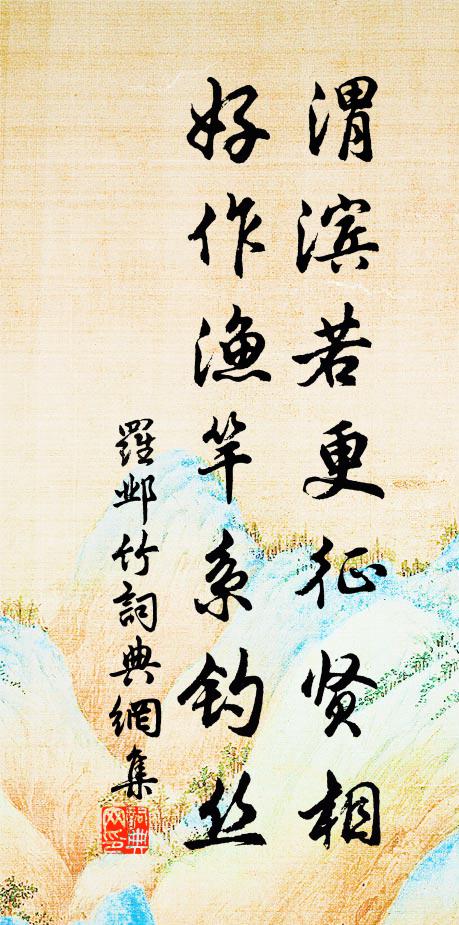 渭滨若更征贤相
好作渔竿系钓丝
羅邺竹詞典網集
詞典网印